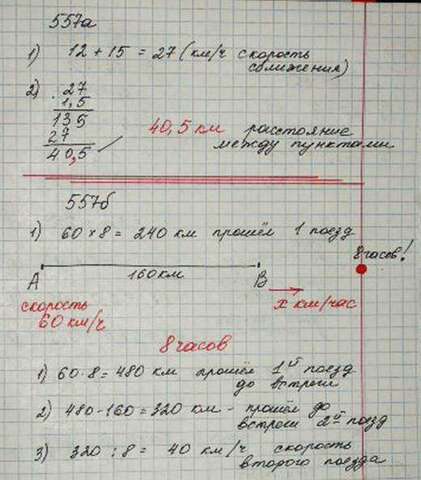 557а
1) 12 + 15 = 27 (км/ч скорость
сближения)
2) 27
1,5
135
27
40,5
40,5 км расстояние
между пунктами
557б
1) 60 × 8 = 240 км прошёл 1 поезд
8 часов!
A 160 км B
x км/час
скорость
60 км/ч
8 часов
1) 60·8 = 480 км прошёл 1й поезд
до встречи
2) 480-160 = 320 км - прошёл до
встречи 2й поезд
3) 320 : 8 = 40 км/ч скорость
второго поезда